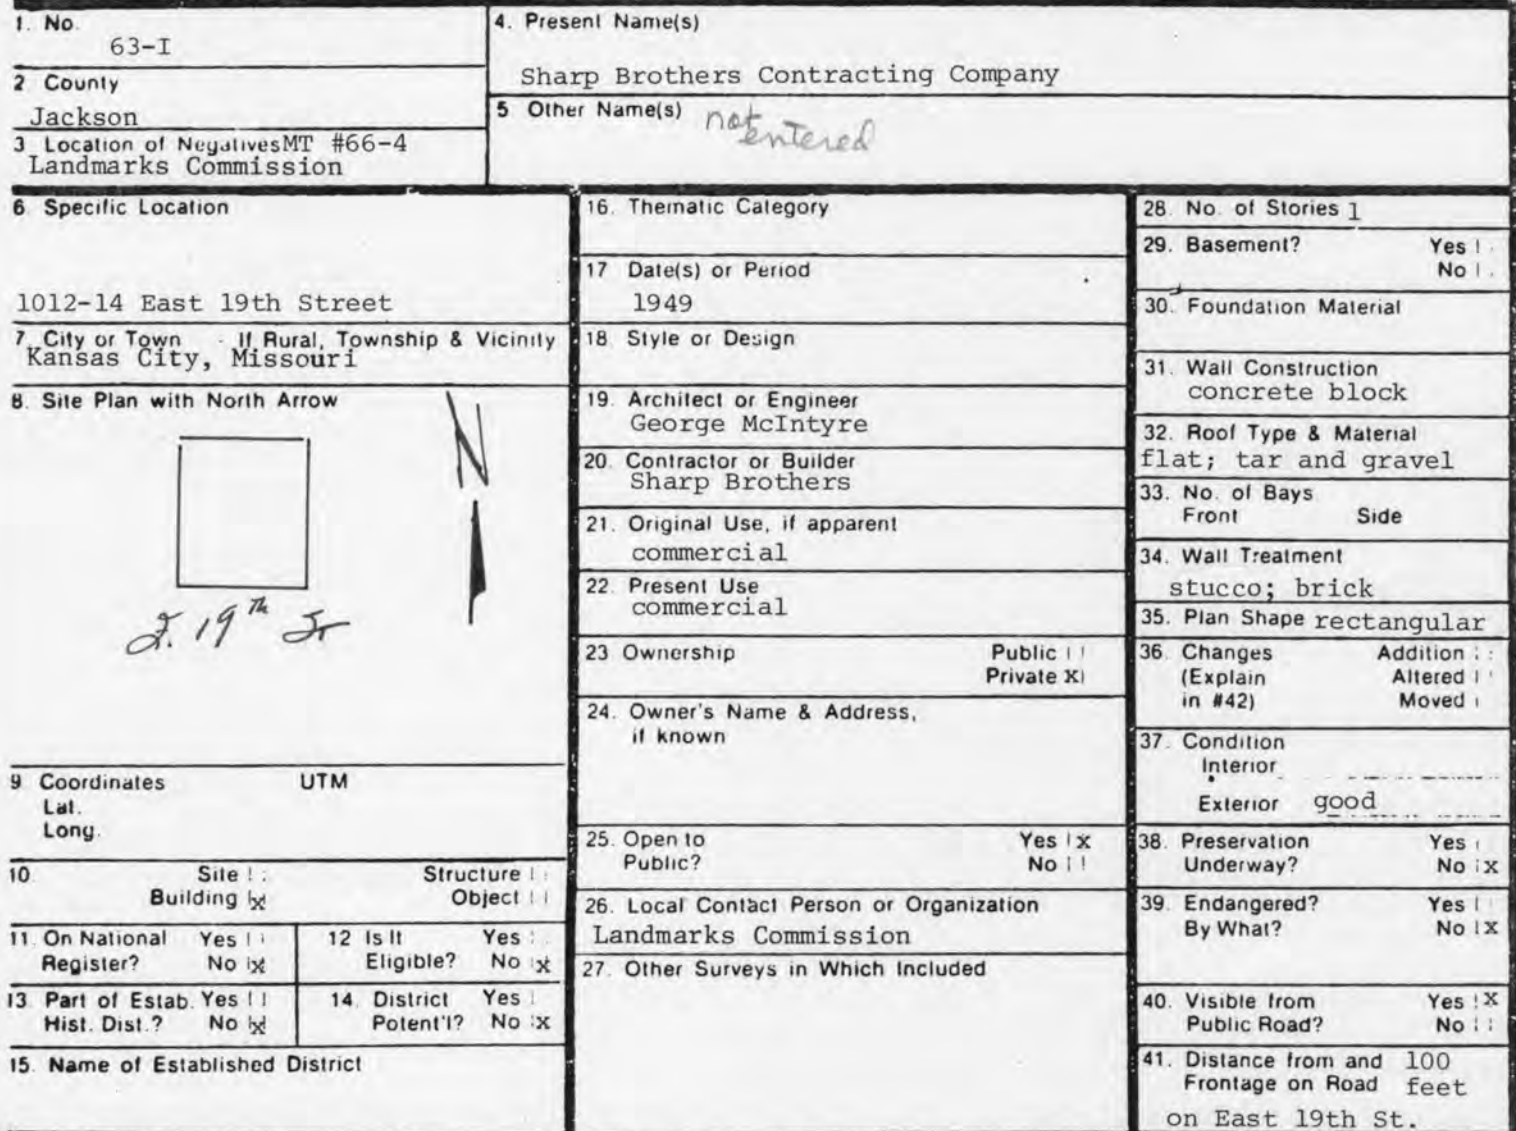 1. No.
63-I
2 County
Jackson
3 Location of Negatives MT #66-4
Landmarks Commission
4. Present Name(s)
Sharp Brothers Contracting Company
5 Other Name(s) not entered
6 Specific Location
1012-14 East 19th Street
7 City or Town If Rural, Township & Vicinity
Kansas City, Missouri
8. Site Plan with North Arrow
N
E. 19th St
9 Coordinates UTM
Lat.
Long.
10. Site Structure
Building x Object
11. On National Yes
Register? No x
12 Is It Yes
Eligible? No x
13. Part of Estab. Yes
Hist. Dist.? No x
14. District Yes
Potent'l? No x
15. Name of Established District
16. Thematic Category
17 Date(s) or Period
1949
18. Style or Design
19. Architect or Engineer
George McIntyre
20. Contractor or Builder
Sharp Brothers
21. Original Use, if apparent
commercial
22. Present Use
commercial
23 Ownership Public
Private X
24. Owner's Name & Address,
if known
25. Open to Yes x
Public? No
26. Local Contact Person or Organization
Landmarks Commission
27. Other Surveys in Which Included
28. No. of Stories 1
29. Basement? Yes
No
30. Foundation Material
31. Wall Construction
concrete block
32. Roof Type & Material
flat; tar and gravel
33. No. of Bays
Front Side
34. Wall Treatment
stucco; brick
35. Plan Shape rectangular
36. Changes Addition
(Explain Altered
in #42) Moved
37. Condition
Interior
Exterior good
38. Preservation Yes
Underway? No x
39. Endangered? Yes
By What? No x
40. Visible from Yes x
Public Road? No
41. Distance from and 100
Frontage on Road feet
on East 19th St.